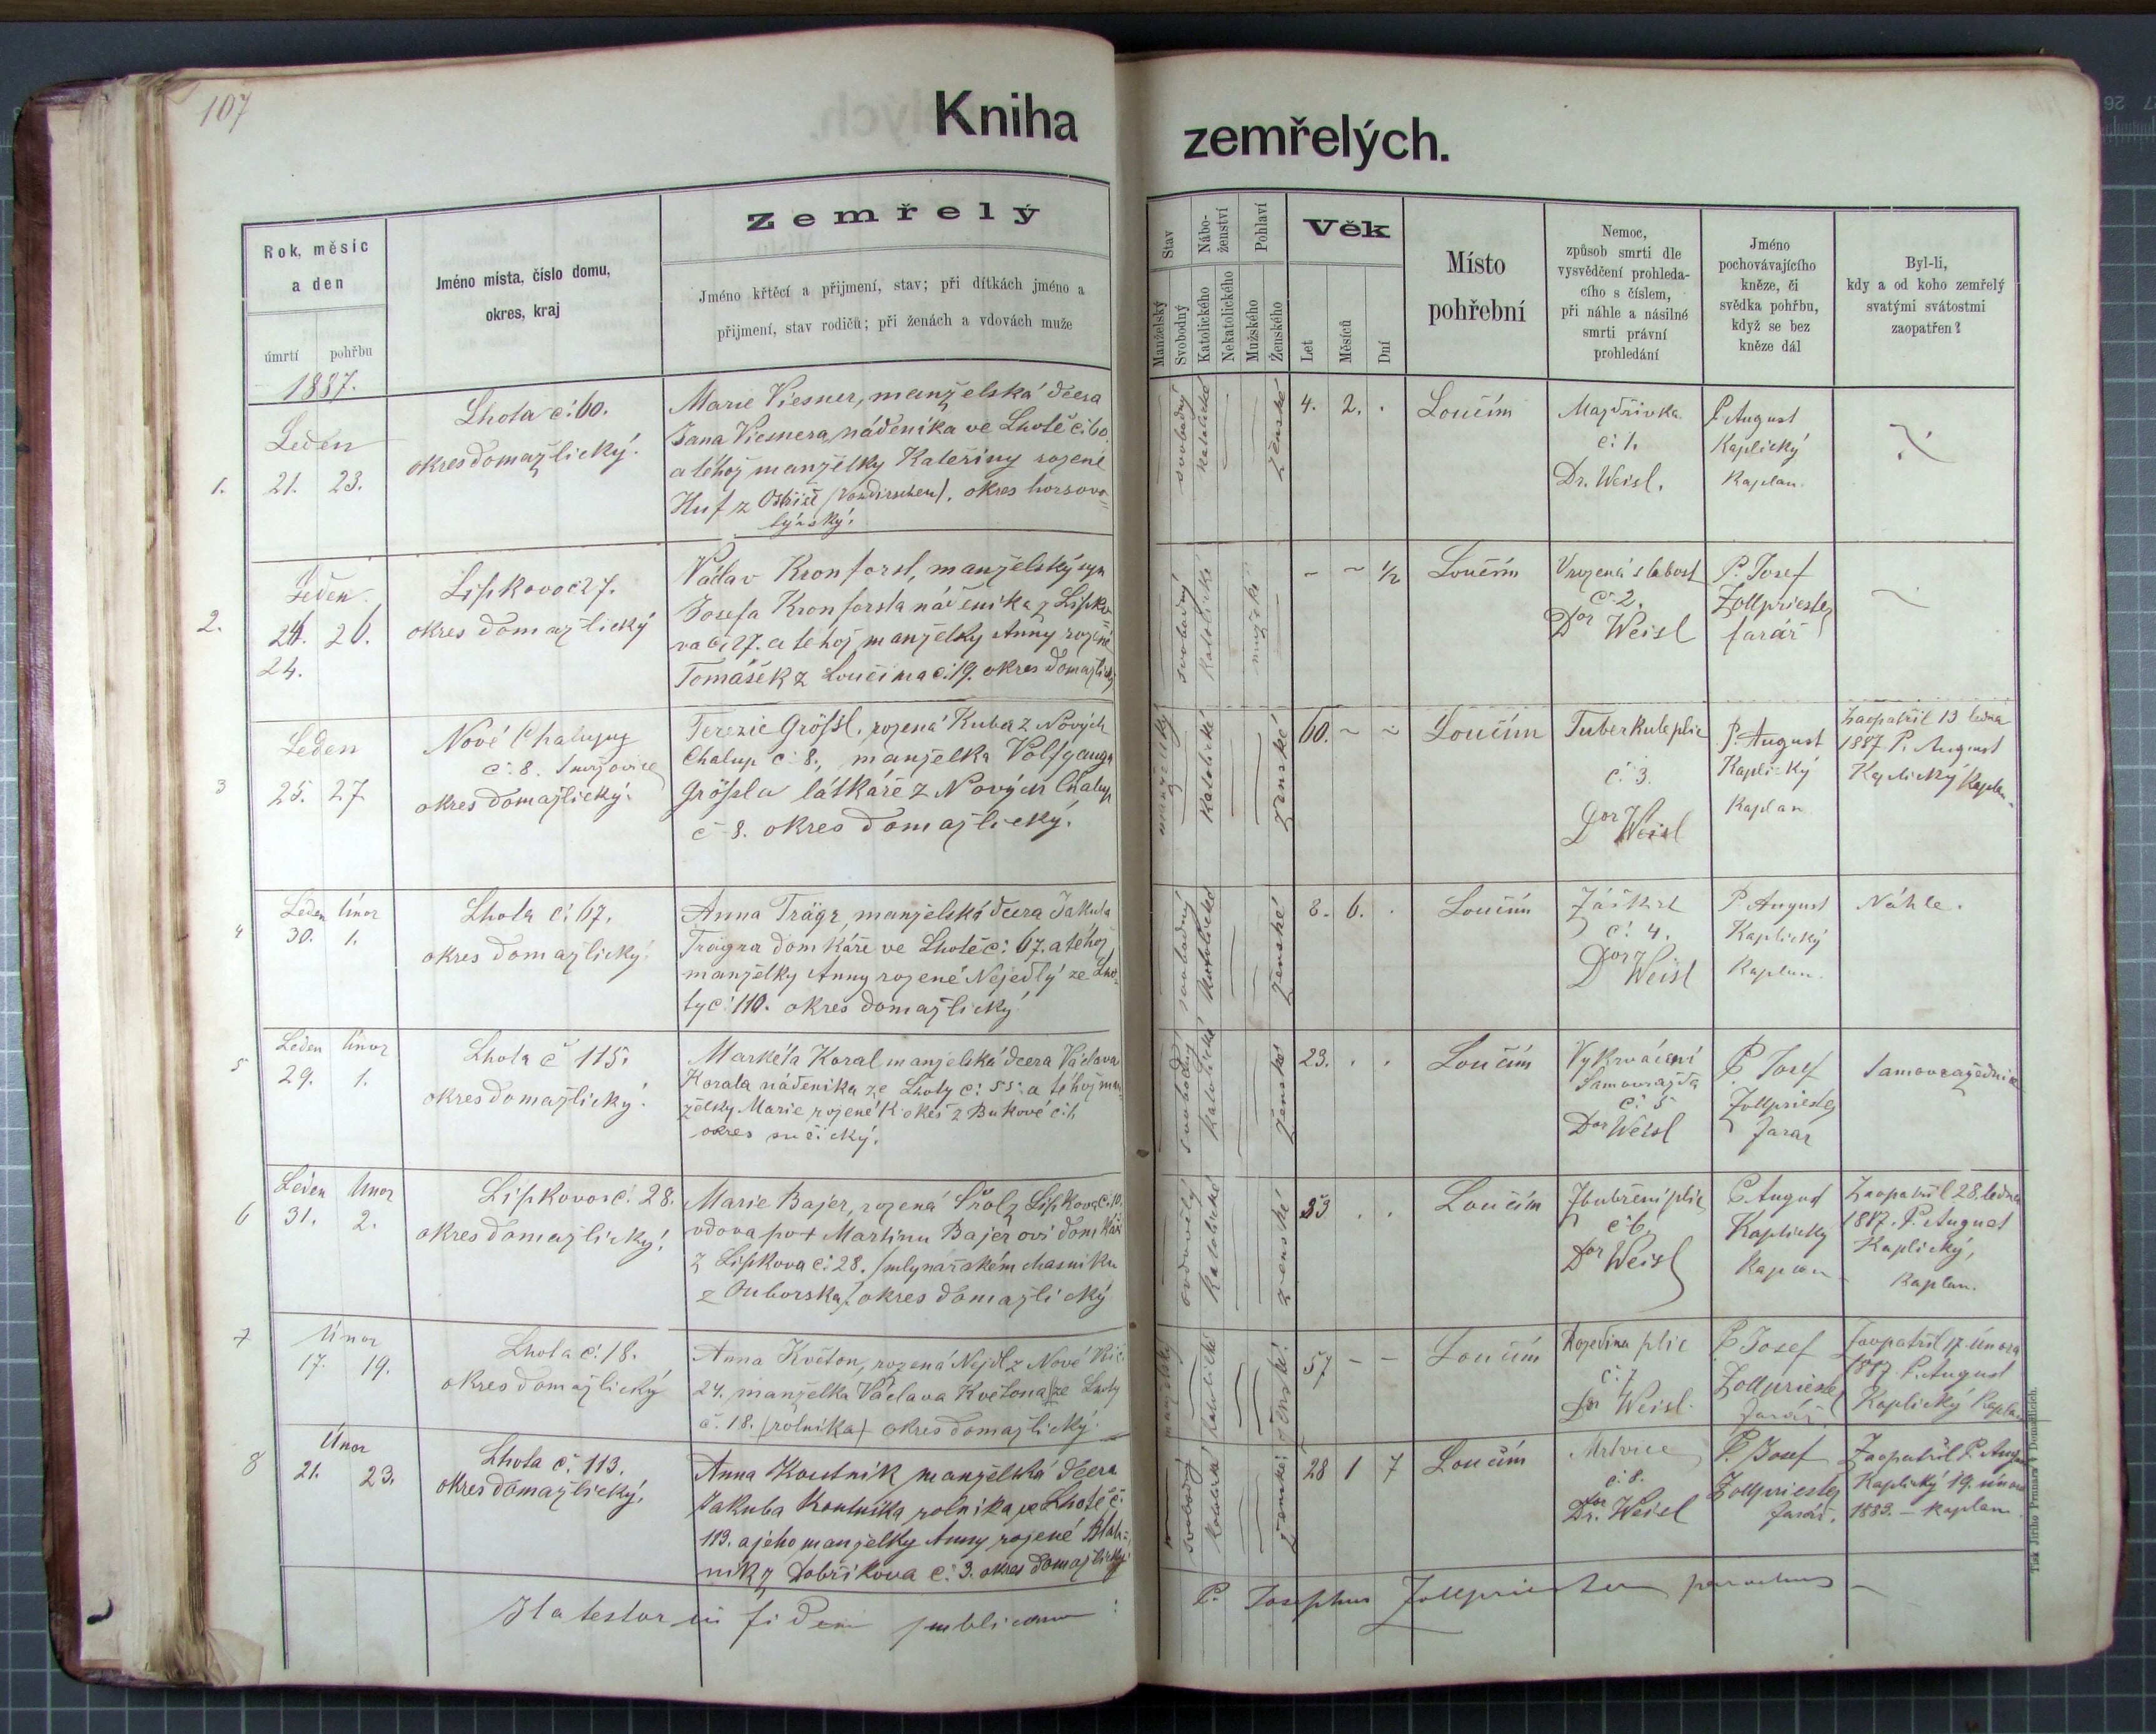 107
Kniha
zemřelých.
Rok, měsíc
a den
úmrtí
pohřbu
Jméno místa, číslo domu,
okres, kraj
Zemřelý
Jméno křtěcí a přijmení, stav; při dítkách jméno a
přijmení, stav rodičů; při ženách a vdovách muže
Stav
Manželský
Svobodný
Nábo-
ženství
Katolického
Nekatolického
Pohlaví
Mužského
Ženského
Věk
Let
Měsíců
Dní
Místo
pohřební
Nemoc,
způsob smrti dle
vysvědčení prohleda-
cího s číslem,
při náhle a násilné
smrti právní
prohledání
Jméno
pochovávajícího
kněze, či
svědka pohřbu,
když se bez
kněze dál
Byl-li,
kdy a od koho zemřelý
svatými svátostmi
zaopatřen?
1887.
1.
Leden
21. 23.
Lhota č. 60.
okres domažlický.
Marie Viesner, manželská dcera
Jana Viesnera, nádeníka ve Lhotě č. 60.
a téhož manželky Kateřiny rozené
Huf z okres horšovo-
týnský.
svobodný
katolické
ženské
4. 2. .
Loučím
č. 1.
Dr. Weisl.
P. August
Kaplický
Kaplan.
2.
Leden.
24. 26.
24.
Lipkovo č 27.
okres domažlický
Václav Kronforst, manželský syn
Josefa Kronforsta nádeníka z Lipko-
va č. 27. a téhož manželky Anny rozené
Tomášek z Loučima č. 19. okres domažlický
svobodný
katolické
mužské
~ ~ 1/2
Loučím
Vrozená slabost
č. 2.
Dor Weisl
P. Josef
Zollpriester
farář
3
Leden
25. 27
Nové Chalupy
č. 8. Smržovice
okres domažlický.
Terezie Größl, rozená Kuba z Nových
Chalup č. 8., manželka Volfganga
Größla látkáře z Nových Chalup
č. 8. okres domažlický.
manželský
katolické
ženské
60. ~ ~
Loučím
Tuberkule plic
č. 3.
Dor Weisl
P. August
Kaplický
Kaplan
Zaopatřil 13 ledna
1887 P. August
Kaplický Kaplan.
4
Leden Únor
30. 1.
Lhota č. 67.
okres domažlický.
Anna Trägr, manželská dcera Jakuba
Trägra domkáře ve Lhotě č. 67. a téhož
manželky Anny rozené Nejedlý ze Lho-
ty č. 110. okres domažlický.
svobodný
katolické
ženské
8. 6. .
Loučím
Záškrt
č. 4.
Dor Weisl
P August
Kaplický
Kaplan.
Náhle.
5
Leden Únor
29. 1.
Lhota č 115.
okres domažlický.
Markéta Koral manželská dcera Václava
Korala nádeníka ze Lhoty č. 55. a téhož man-
želky Marie rozené Kokeš z Bukové č.
okres sušický.
svobodný
katolické
ženské
23. . .
Loučím
Vykrvácení
Samovražda
č. 5
Dor Weisl
P. Josef
Zollpriester
farář
Samovražednice
6
Leden Únor
31. 2.
Lipkovo č. 28.
okres domažlický.
Marie Bajer, rozená z Lipkova č. 10.
vdova po + Martinu Bajerovi domkáři
z Lipkova č. 28. /mlynářském chasníku
z Ouborska/. okres domažlický
ovdovělý
katolické
ženské
33 . .
Loučím
plic
č. 6.
Dor Weisl
P. August
Kaplický
Kaplan
Zaopatřil 28. ledna
1887. P. August
Kaplický,
Kaplan.
7
Únor
17. 19.
Lhota č. 18.
okres domažlický
Anna Květon, rozená Nejdl z Nové
24. manželka Václava Květona ze Lhoty
č. 18. (rolníka) okres domažlický.
manželský
katolické
ženské.
57 – –
Loučím
Rozedma plic
č. 7
Dor Weisl.
P. Josef
Zollpriester
farář.
Zaopatřil 17 února
1887. P. August
Kaplický Kaplan
8
Únor
21. 23.
Lhota č. 113.
okres domažlický.
Anna Koutník manželská dcera
Jakuba Koutníka rolníka ve Lhotě č.
113. a jeho manželky Anny rozené Blah-
ník z Dobříkova č. 3. okres domažlický.
svobodný
katolické
ženské
28 1 7
Loučím
Mrtvice
č. 8.
Dr. Weisl
P. Josef
Zollpriester
farář.
Zaopatřil P. August
Kaplický 19. února
1883. – Kaplan
Ita testor in fidem publicam :
P. Josephus Zollpriester parochus –
Tisk Jiřího Prunara v Domažlicích.